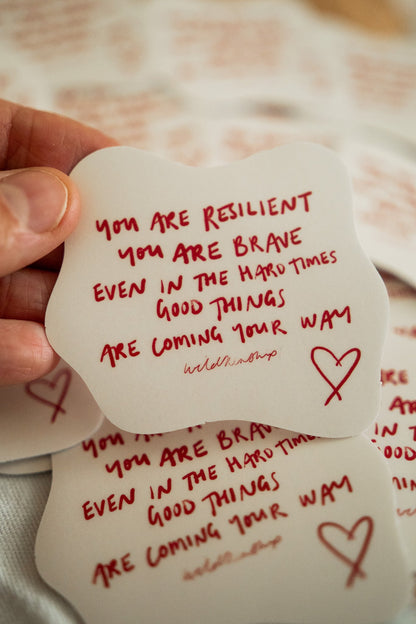 YOU ARE RESILIENT
YOU ARE BRAVE
EVEN IN THE HARD TIMES
GOOD THINGS
ARE COMING YOUR WAY
YOU ARE BRAVE
EVEN IN THE HARD TIMES
GOOD THINGS
ARE COMING YOUR WAY